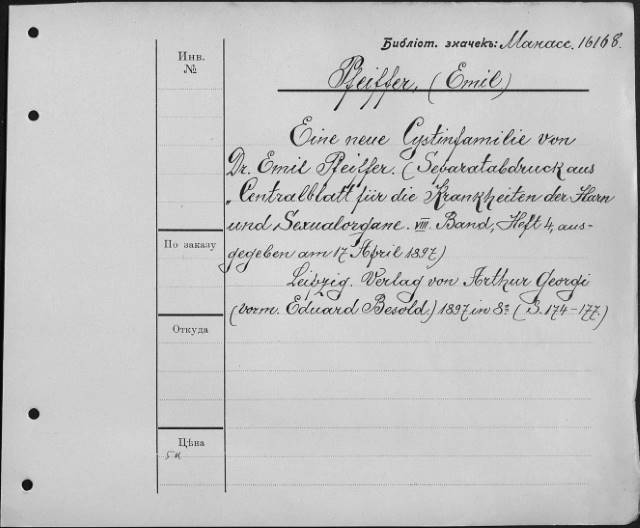 Библіот. значекъ: Манасс. 16168.
Инв.
№
Pfeiffer. (Emil)
Eine neue Cystinfamilie von
Dr. Emil Pfeiffer. (Separatabdruck aus
„Centralblatt für die Krankheiten der Harn
und Sexualorgane. VIII. Band, Heft 4, aus-
gegeben am 17 April 1897.)
По заказу
Leipzig. Verlag von Arthur Georgi
(vorm. Eduard Besold.) 1897 in 8º. (S. 174-177.)
Откуда
Цѣна